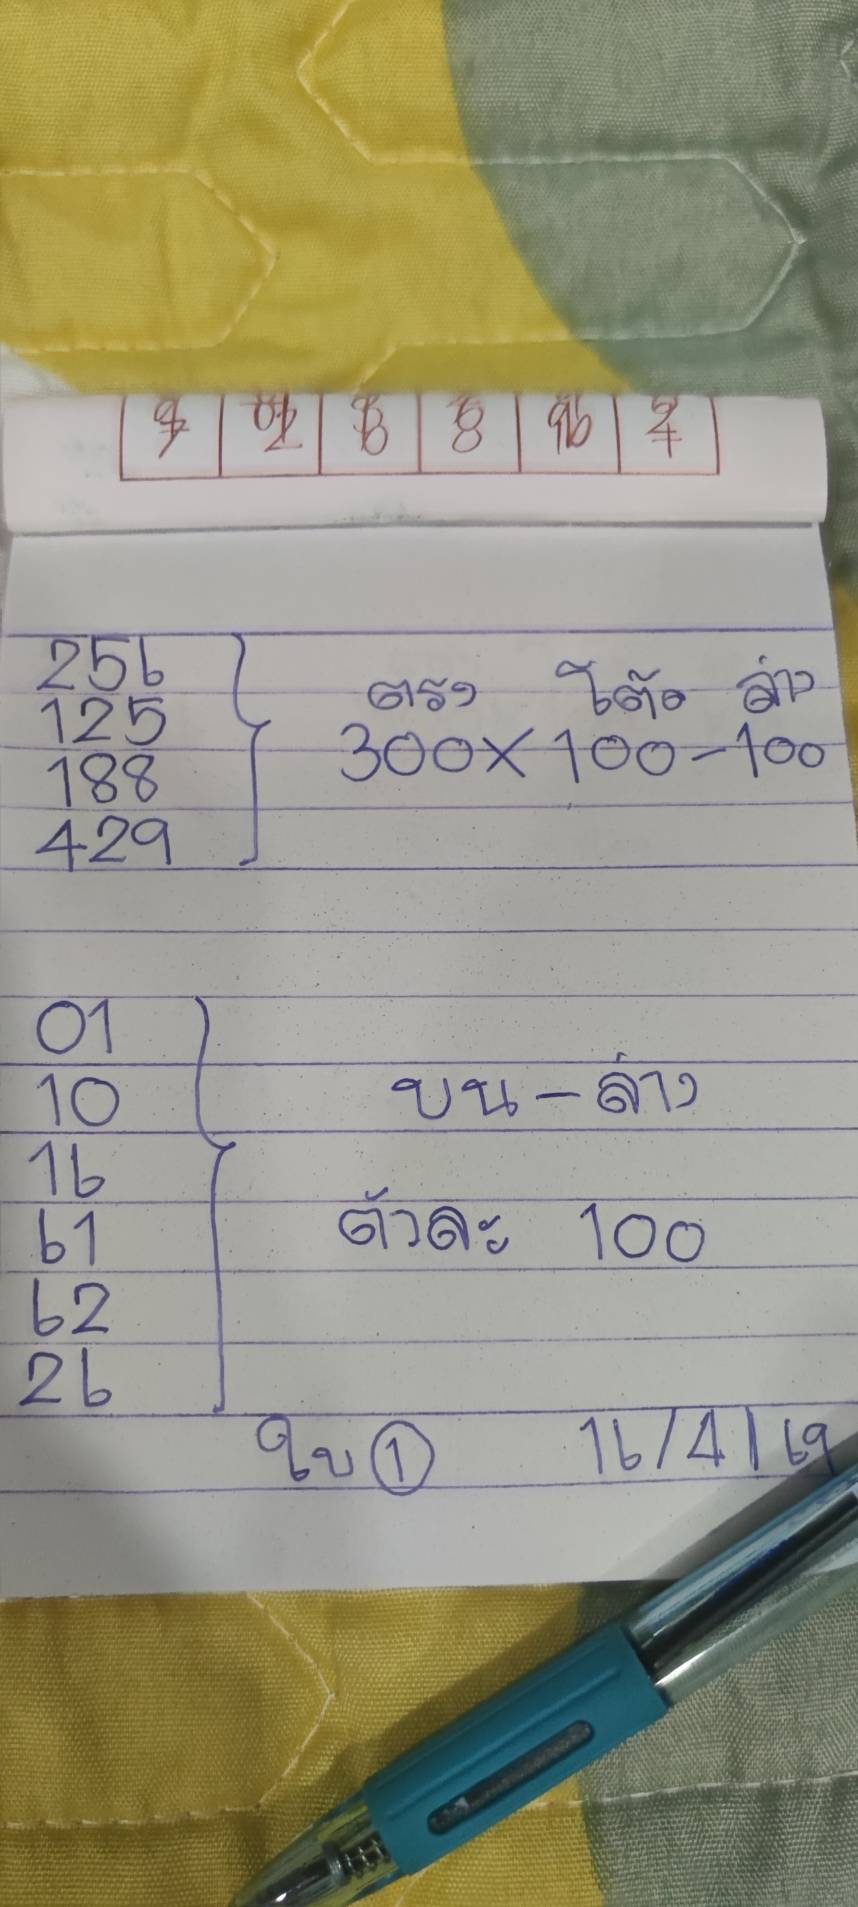 256
125
188
429
ตรง โต๊ด ล่าง
300×100-100
01
10
16
61
62
26
บน-ล่าง
ตัวละ 100
ใบ ①
16/4/69